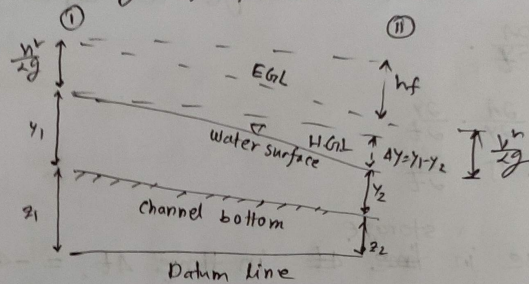 I II
v²/2g
EGL
hf
y₁
Water surface
HGL
Δy=y₁-y₂
v²/2g
y₂
z₁
Channel bottom
z₂
Datum line